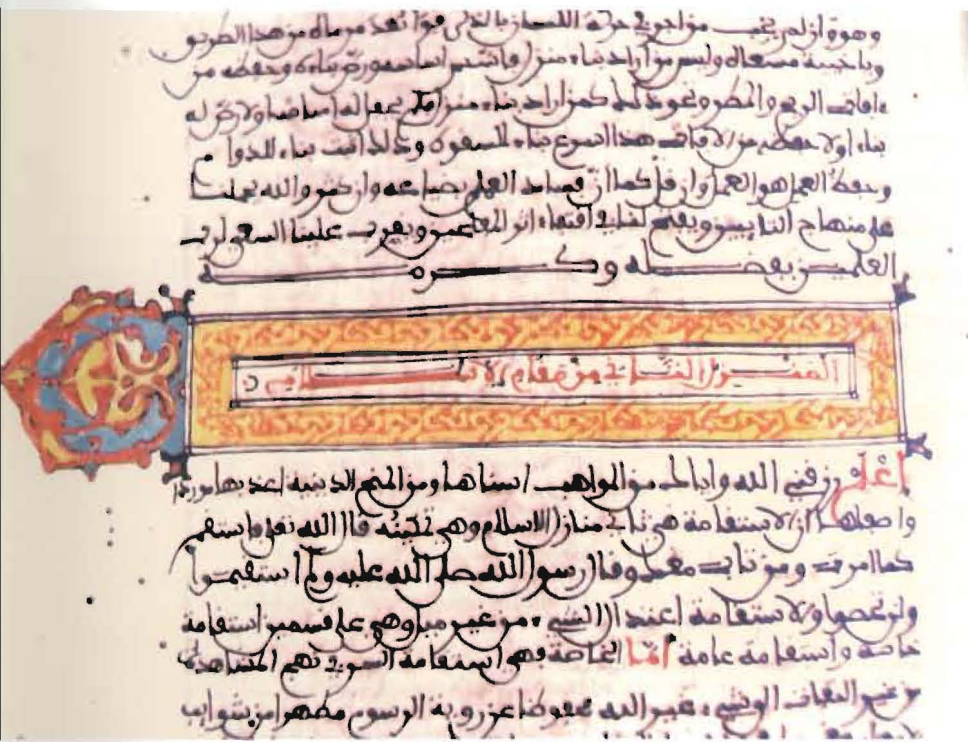 وهوة ان لم يغب من اجوى حركة اللسان بالذكر فهو ابعد من ماله من هذا الطريق
وبا خيبة مسعاله وليس من اراد بناء منزل فاسس اساسه ورض بناءه وحفظه من
ءافات الريح والمطر ونحو ذلك كمن اراد بناء منزل فلم يجعل له اساسا ولا رض له
بناء اولا حفظه من الافات هذا اسرع بناء للسقوط وذلك اثبت بناء للدوام
وحفظ العمل هو العمل وان قل كما ان فساد العمل بضياعه وان كثر والله يحملنا
على منهاج التاببين ويفسح لنا في اقتفاء اثر الخاشعين ويقرب علينا السعي لرب
العلمين بفضله وكرمه
المنزل الثاني من مقام الاسلام
اعلم رزقني الله واياك من المواهب اسناها ومن المنح الدينية اعذبها موردا
واصفاها ان الاستقامة هي ثاني منازل الاسلام وهي نتيجته قال الله تعلى فاستقم
كما امرت ومن تاب معك وقال رسول الله صلى الله عليه وسلم استقيموا
ولن تحصوا والاستقامة اعتدال الشيء من غير ميل وهي على قسمين استقامة
خاصة واستقامة عامة اما الخاصة فهي استقامة السر في نهج المشاهدة
من غير التفات الى شيء غير الله محفوظا عن روية الرسوم مطهرا من شوايب